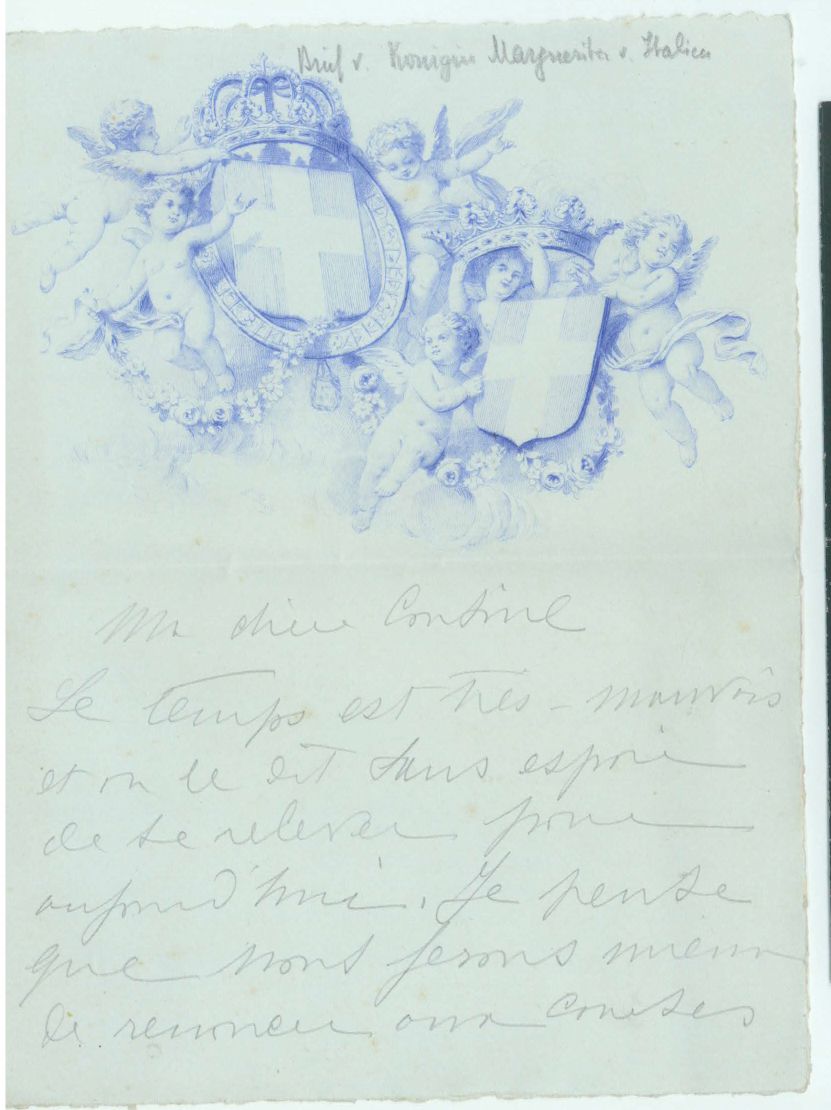 Brief v. Königin Margueritha v. Italien
Ma chère Contine
Le temps est très-mauvais
et on le dit sans espoir
de se relever pour
aujourd'hui. Je pense
que nous ferons mieux
de renoncer aux courses